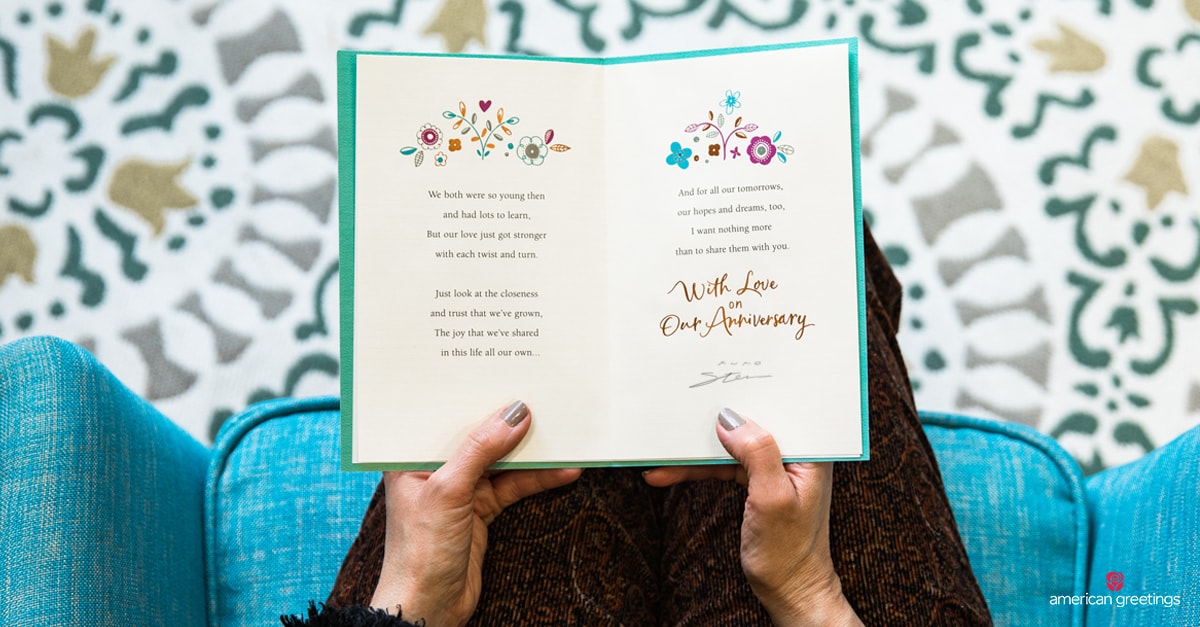 We both were so young then
and had lots to learn,
But our love just got stronger
with each twist and turn.
Just look at the closeness
and trust that we've grown,
The joy that we've shared
in this life all our own...
And for all our tomorrows,
our hopes and dreams, too,
I want nothing more
than to share them with you.
With Love
on
Our Anniversary
american greetings